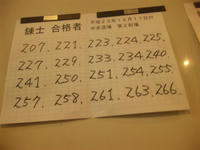 錬士 合格者
平成23年11月17日(木)
中央道場 第2剣場
207. 221. 223. 224. 225.
227. 229. 233. 234. 240.
241. 250. 251. 254. 255.
257. 258. 261. 263. 266.